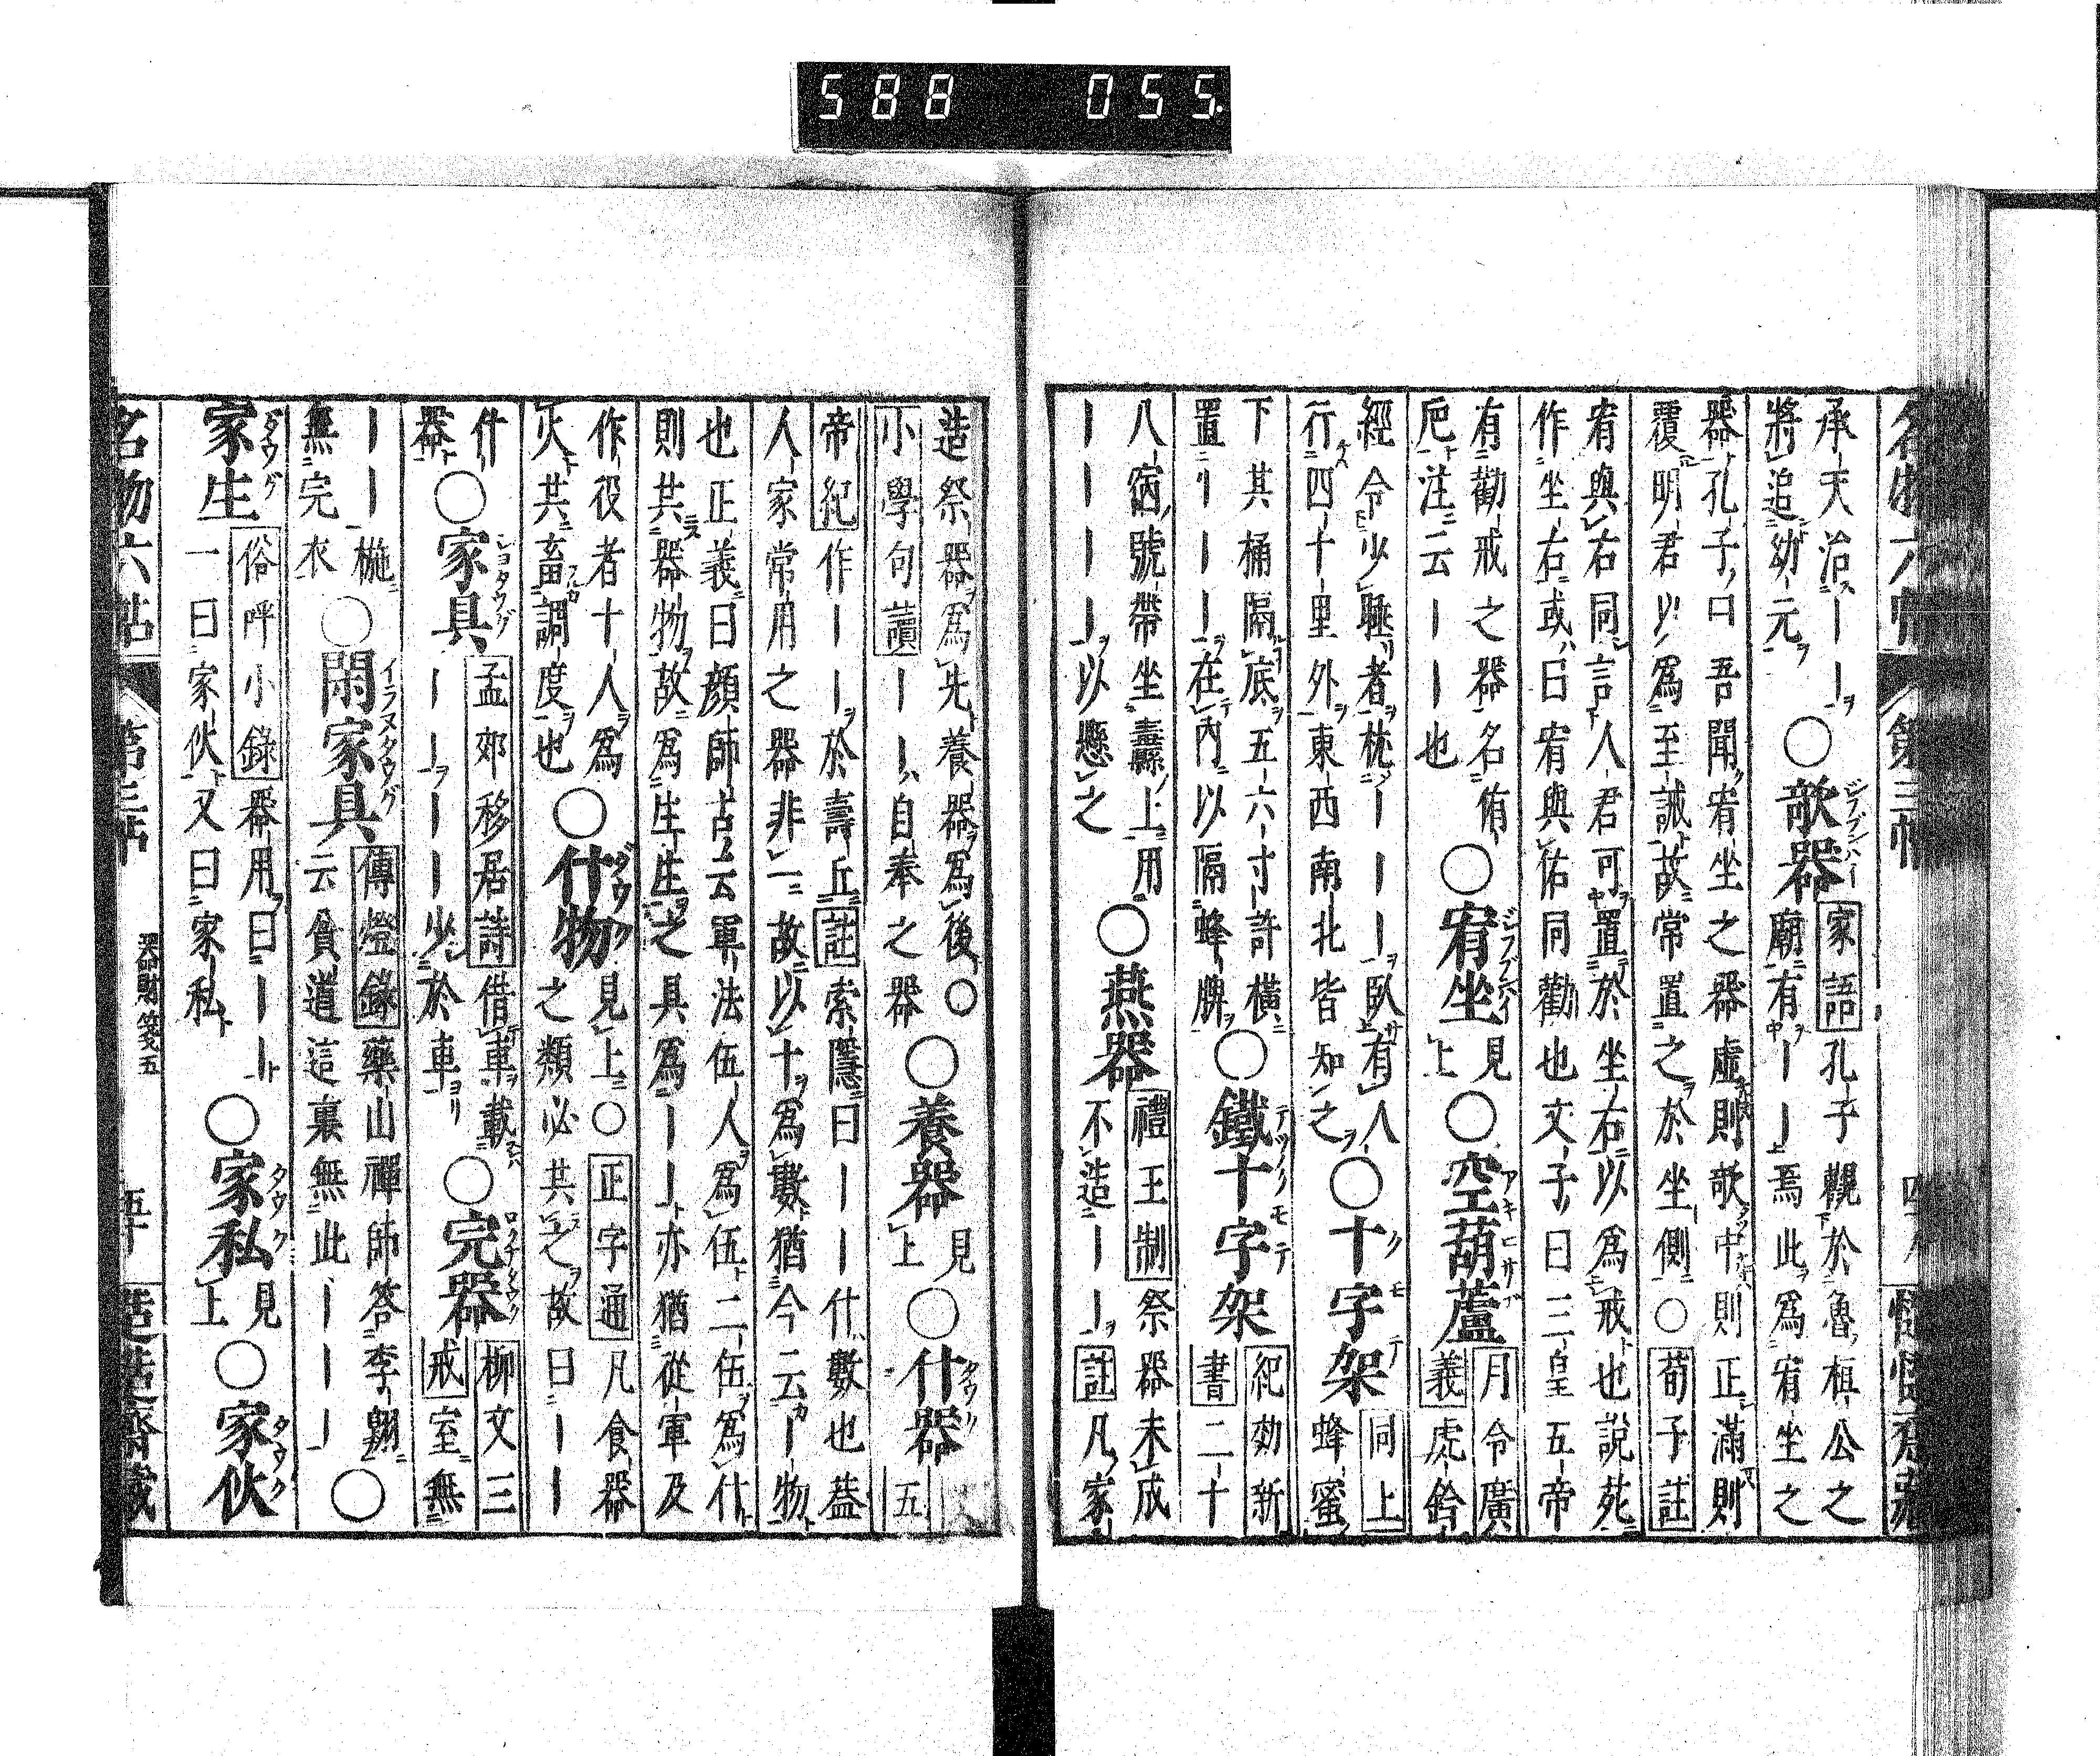 588 055.
承天治｜｜
將追幼元
○欹器
家語孔子觀於魯桓公之
廟有｜｜焉此爲宥坐之
器孔子曰吾聞宥坐之器虛則欹中則正滿則
覆明君以爲至誠故常置之於坐側○荀子註
宥與右同言人君可置於坐右以爲戒也說苑
作坐右或曰宥與佑同勸也文子曰三皇五帝
有勸戒之器名侑
巵注云｜｜也
○宥坐
見
上
○空葫蘆
月令廣
義虎鈐
經令少睡者枕｜｜｜臥有人
行四十里外東西南北皆知之
○十字架
同上
蜂蜜
下其桶隔底五六寸許橫
置｜｜｜在內以隔蜂牌
○鐵十字架
紀効新
書二十
八宿號帶坐纛上用
｜｜｜｜以懸之
○燕器
禮王制祭器未成
不造｜｜註凡家
造祭器爲先養器爲後○
小學句讀｜｜自奉之器
○養器
見
上
○什器
五
帝紀作｜｜於壽丘註索隱曰｜｜什數也葢
人家常用之器非一故以十爲數猶今云｜物
也正義曰顏師古云軍法伍人爲伍二伍爲什
則共器物故爲生生之具爲｜｜亦猶從軍及
作役者十人爲
火共畜調度也
○什物
見上○正字通凡食器
之類必共之故曰｜｜
什
器
○家具
孟郊移居詩借車載
｜｜｜｜少於車
○完器
柳文三
戒室無
｜｜椸
無完衣
○閑家具
傳燈錄藥山禪師答李翺
云貧道這裏無此｜｜｜
○
家生
俗呼小錄器用曰｜｜
一曰家伙又曰家私
○家私
見
上
○家伙
名物六帖
第三帖
器財箋五
五十